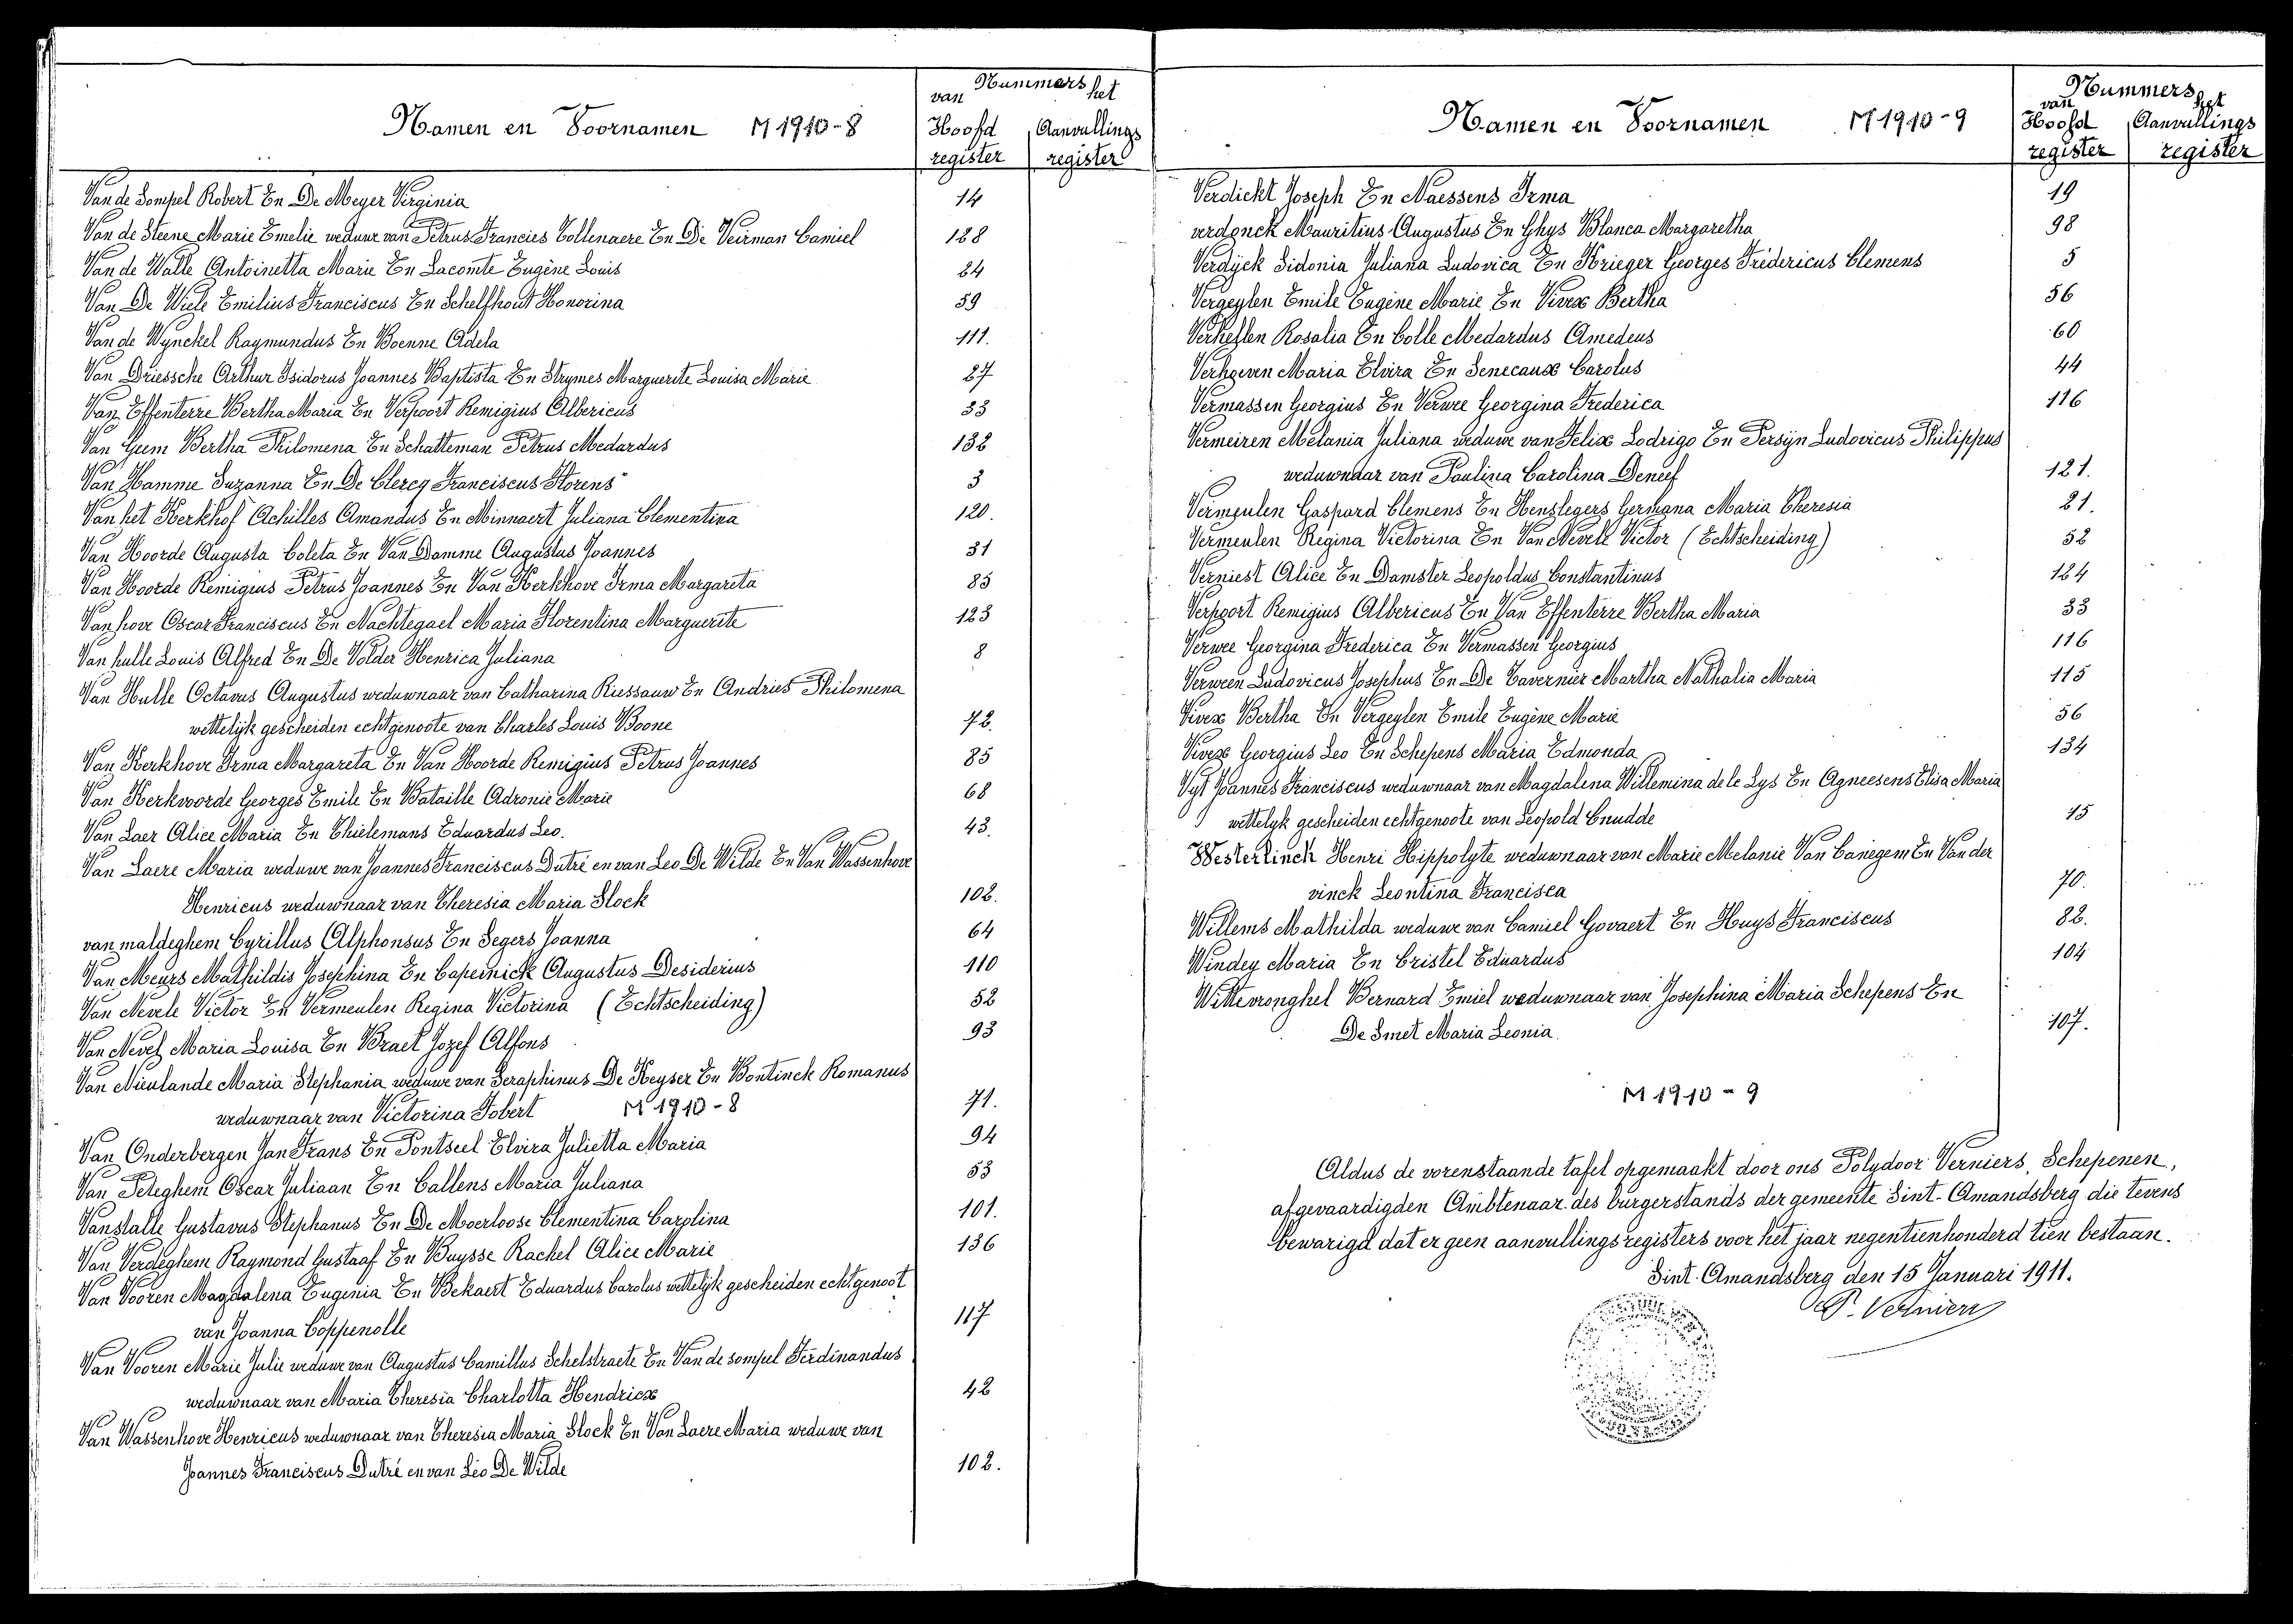 Namen en Voornamen M 1910-8
Nummers
van het
Hoofd register Aanvullings register
Van de Sompel Robert En De Meyer Virginia 14
Van de Steene Marie Emelie weduwe van Petrus Francies Collenaere En De Veirman Camiel 128
Van de Walle Antoinetta Marie En Lacomte Eugène Louis 24
Van De Wiele Emilius Franciscus En Schelfhout Honorina 59
Van de Wynckel Raymundus En Boenne Adela 111.
Van Driessche Arthur Isidorus Joannes Baptista En Strymes Marguerite Louisa Marie 27
Van Effenterre Bertha Maria En Verpoort Remigius Albericus 33
Van Gyem Bertha Philomena En Schatteman Petrus Medardus 132
Van Hamme Suzanna En De Clercq Franciscus Florens 3
Van het Kerkhof Achilles Amandus En Minnaert Juliana Clementina 120.
Van Hoorde Augusta Coleta En Van Damme Augustus Joannes 31
Van Hoorde Remigius Petrus Joannes En Van Kerkhove Irma Margareta 85
Van hove Oscar Franciscus En Nachtegael Maria Florentina Marguerite 123
Van hulle Louis Alfred En De Volder Henrica Juliana 8
Van Hulle Octavus Augustus weduwnaar van Catharina Riessauw En Andries Philomena
wettelijk gescheiden echtgenoote van Charles Louis Boone 72.
Van Kerkhove Irma Margareta En Van Hoorde Remigius Petrus Joannes 85
Van Kerkvoorde Georges Emile En Bataille Adronie Marie 68
Van Laer Alice Maria En Thielemans Eduardus Leo. 43.
Van Laere Maria weduwe van Joannes Franciscus Dutré en van Leo De Wilde En Van Wassenhove
Henricus weduwnaar van Theresia Maria Stock 102.
van maldeghem Cyrillus Alphonsus En Segers Joanna 64
Van Meurs Mathildis Josephina En Capeinick Augustus Desiderius 110
Van Nevele Victor En Vermeulen Regina Victorina (Echtscheiding) 52
Van Nevel Maria Louisa En Brael Jozef Alfons 93
Van Nieulande Maria Stephania weduwe van Seraphinus De Keyser En Bontinck Romanus
weduwnaar van Victorina Jobert M 1910-8 71.
Van Onderbergen Jan Frans En Pontseel Elvira Julietta Maria 94
Van Peteghem Oscar Juliaan En Callens Maria Juliana 53
Vanstalle Gustavus Stephanus En De Moerloose Clementina Carolina 101.
Van Verdeghem Raymond Gustaaf En Buysse Rachel Alice Marie 136
Van Vooren Magdalena Eugenia En Bekaert Eduardus Carolus wettelijk gescheiden echtgenoot
van Joanna Coppenolle 117
Van Vooren Marie Julie weduwe van Augustus Camillus Schelstraete En Van de sompel Ferdinandus
weduwnaar van Maria Theresia Charlotta Hendricx 42
Van Wassenhove Henricus weduwnaar van Theresia Maria Stock En Van Laere Maria weduwe van
Joannes Franciscus Dutré en van Leo De Wilde 102.
Namen en Voornamen M 1910-9
Nummers
van het
Hoofd register Aanvullings register
Verdickt Joseph En Naessens Irma 19
verdonck Mauritius Augustus En Ghys Blanca Margaretha 98
Verdyck Sidonia Juliana Ludovica En Krieger Georges Fredericus Clemens 5
Vergeylen Emile Eugène Marie En Vivex Bertha 56
Verheylen Rosalia En Colle Medardus Amedeus 60
Verhoeven Maria Elvira En Senecaux Carolus 44
Vermassen Georgius En Verwee Georgina Frederica 116
Vermeiren Melania Juliana weduwe van Felix Lodrigo En Persyn Ludovicus Philippus
weduwnaar van Paulina Carolina Deneef 121.
Vermeulen Gaspard Clemens En Henslegers Germana Maria Theresia 21.
Vermeulen Regina Victorina En Van Nevele Victor (Echtscheiding) 52
Verniest Alice En Damster Leopoldus Constantinus 124
Verpoort Remigius Albericus En Van Effenterre Bertha Maria 33
Verwee Georgina Frederica En Vermassen Georgius 116
Verween Ludovicus Josephus En De Tavernier Martha Nathalia Maria 115
Vivex Bertha En Vergeylen Emile Eugène Marie 56
Vivex Georgius Leo En Schepens Maria Edmonda 134
Vyt Joannes Franciscus weduwnaar van Magdalena Willemina de le Lys En Agneesens Elisa Maria
wettelyk gescheiden echtgenoote van Leopold Cnudde 15
Westerlinck Henri Hippolyte weduwnaar van Marie Melanie Van Canegem En Van der
vinck Leontina Francisca 70.
Willems Mathilda weduwe van Camiel Govaert En Huys Franciscus 82.
Windey Maria En Cristel Eduardus 104
Wittevronghel Bernard Emiel weduwnaar van Josephina Maria Schepens En
De Smet Maria Leonia. 107.
M 1910 - 9
Aldus de vorenstaande tafel opgemaakt door ons Polydoor Verniers, Schepenen,
afgevaardigden Ambtenaar des burgerstands der gemeente Sint-Amandsberg die tevens
bewarigd dat er geen aanvullingsregisters voor het jaar negentienhonderd tien bestaan.
Sint-Amandsberg den 15 Januari 1911.
P. Verniers